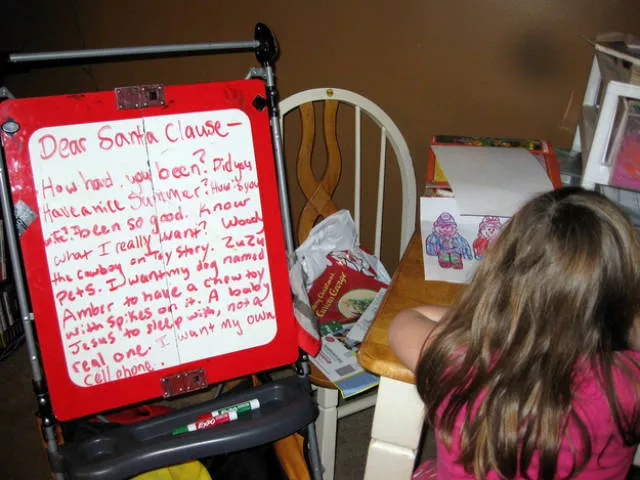 Dear Santa Clause-
How hard you been? Did you
Have a nice Summer? How is your
wife? I been so good. Know
what I really want? Woody
the cowboy on Toy Story. ZuZu
Pets. I want my dog named
Amber to have a chew toy
with spikes on it. A baby
Jesus to sleep with, not a
real one. I want my own
Cell phone.
EXPO
Curious George